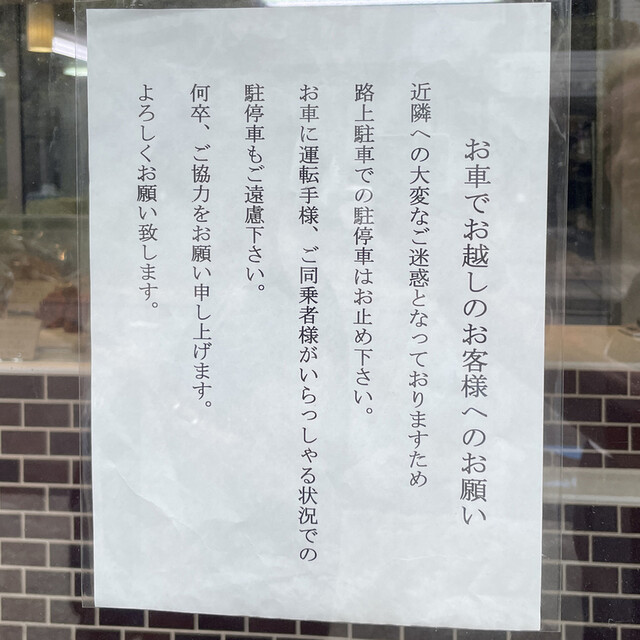 お車でお越しのお客様へのお願い
近隣への大変なご迷惑となっておりますため
路上駐車での駐停車はお止め下さい。
お車に運転手様、ご同乗者様がいらっしゃる状況での
駐停車もご遠慮下さい。
何卒、ご協力をお願い申し上げます。
よろしくお願い致します。